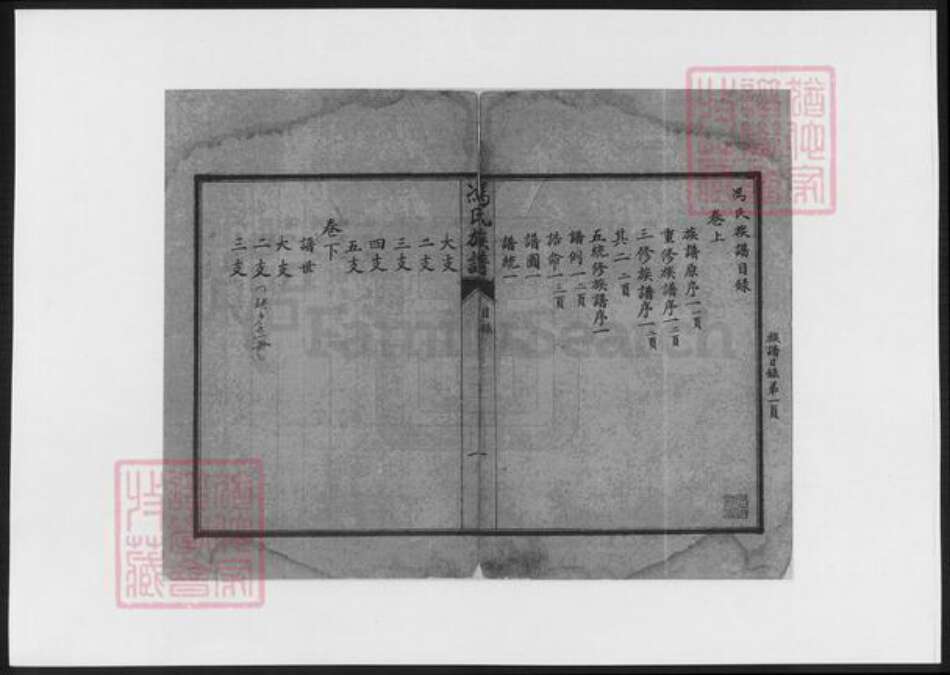 族譜目錄第一頁
馮氏族譜目錄
卷上
族譜原序一一頁
重修族譜序一二頁
三修族譜序一三頁
其二二頁
五統修族譜序一
譜例一二頁
誥命一三頁
譜圖一
譜統一
馮氏族譜
目錄
一
大支
二支
三支
四支
五支
卷下
譜世
大支
二支
三支
FamilySearch